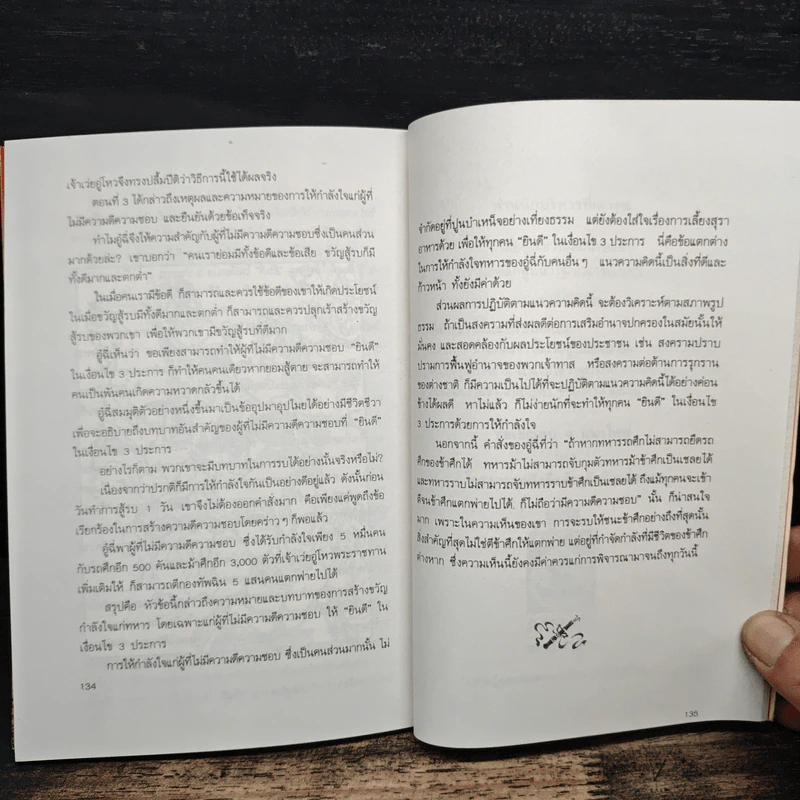 เจ้าเว่ยอู่โหวจึงทรงปลื้มปีติว่าวิธีการนี้ใช้ได้ผลจริง
ตอนที่ 3 ได้กล่าวถึงเหตุผลและความหมายของการให้กำลังใจแก่ผู้ที่
ไม่มีความดีความชอบ และยืนยันด้วยข้อเท็จจริง
ทำไมอู๋ฉี่จึงให้ความสำคัญกับผู้ที่ไม่มีความดีความชอบซึ่งเป็นคนส่วน
มากด้วยล่ะ? เขาบอกว่า “คนเราย่อมมีทั้งข้อดีและข้อเสีย ขวัญสู้รบก็มี
ทั้งดีมากและตกต่ำ”
ในเมื่อคนเรามีข้อดี ก็สามารถและควรใช้ข้อดีของเขาให้เกิดประโยชน์
ในเมื่อขวัญสู้รบมีทั้งดีมากและตกต่ำ ก็สามารถและควรปลุกเร้าสร้างขวัญ
สู้รบของพวกเขา เพื่อให้พวกเขามีขวัญสู้รบที่ดีมาก
อู๋ฉี่เห็นว่า ขอเพียงสามารถทำให้ผู้ที่ไม่มีความดีความชอบ “ยินดี”
ในเงื่อนไข 3 ประการ ก็ทำให้คนคนเดียวหากยอมสู้ตาย จะสามารถทำให้
คนเป็นพันคนเกิดความหวาดกลัวขึ้นได้
อู๋ฉี่สมมุติตัวอย่างหนึ่งขึ้นมาเป็นข้ออุปมาอุปไมยได้อย่างมีชีวิตชีวา
เพื่อจะอธิบายถึงบทบาทอันสำคัญของผู้ที่ไม่มีความดีความชอบที่ “ยินดี”
ในเงื่อนไข 3 ประการ
อย่างไรก็ตาม พวกเขาจะมีบทบาทในการรบได้อย่างนั้นจริงหรือไม่?
เนื่องจากว่าปรกติก็มีการให้กำลังใจกันเป็นอย่างดีอยู่แล้ว ดังนั้นก่อน
วันทำการสู้รบ 1 วัน เขาจึงไม่ต้องออกคำสั่งมาก คือเพียงแค่พูดถึงข้อ
เรียกร้องในการสร้างความดีความชอบโดยคร่าวๆ ก็พอแล้ว
อู๋ฉี่พาผู้ที่ไม่มีความดีความชอบ ซึ่งได้รับกำลังใจเพียง 5 หมื่นคน
กับรถศึกอีก 500 คันและม้าศึกอีก 3,000 ตัวที่เจ้าเว่ยอู่โหวพระราชทาน
เพิ่มเติมให้ ก็สามารถตีกองทัพฉิน 5 แสนคนแตกพ่ายไปได้
สรุปคือ หัวข้อนี้กล่าวถึงความหมายและบทบาทของการสร้างขวัญ
กำลังใจแก่ทหาร โดยเฉพาะแก่ผู้ที่ไม่มีความดีความชอบ ให้ “ยินดี” ใน
เงื่อนไข 3 ประการ
การให้กำลังใจแก่ผู้ที่ไม่มีความดีความชอบ ซึ่งเป็นคนส่วนมากนั้น ไม่
134
จำกัดอยู่ที่ปูนบำเหน็จอย่างเที่ยงธรรม แต่ยังต้องใส่ใจเรื่องการเลี้ยงสุรา
อาหารด้วย เพื่อให้ทุกคน “ยินดี” ในเงื่อนไข 3 ประการ นี่คือข้อแตกต่าง
ในการให้กำลังใจทหารของอู๋ฉี่กับคนอื่นๆ แนวความคิดนี้เป็นสิ่งที่ดีและ
ก้าวหน้า ทั้งยังมีค่าด้วย
ส่วนผลการปฏิบัติตามแนวความคิดนี้ จะต้องวิเคราะห์ตามสภาพรูป
ธรรม ถ้าเป็นสงครามที่ส่งผลดีต่อการเสริมอำนาจปกครองในสมัยนั้นให้
มั่นคง และสอดคล้องกับผลประโยชน์ของประชาชน เช่น สงครามปราบ
ปรามการฟื้นฟูอำนาจของพวกเจ้าทาส หรือสงครามต่อต้านการรุกราน
ของต่างชาติ ก็มีความเป็นไปได้ที่จะปฏิบัติตามแนวความคิดนี้ได้อย่างค่อน
ข้างได้ผลดี หาไม่แล้ว ก็ไม่ง่ายนักที่จะทำให้ทุกคน “ยินดี” ในเงื่อนไข
3 ประการด้วยการให้กำลังใจ
นอกจากนี้ คำสั่งของอู๋ฉี่ที่ว่า “ถ้าหากทหารรถศึกไม่สามารถยึดรถ
ศึกของข้าศึกได้ ทหารม้าไม่สามารถจับกุมตัวทหารม้าข้าศึกเป็นเชลยได้
และทหารราบไม่สามารถจับตัวทหารราบข้าศึกเป็นเชลยได้ ถึงแม้ทุกคนจะเข้า
ตีจนข้าศึกแตกพ่ายไปได้ ก็ไม่ถือว่ามีความดีความชอบ” นั้น ก็น่าสนใจ
มาก เพราะในความเห็นของเขา การจะรบให้ชนะข้าศึกอย่างถึงที่สุดนั้น
สิ่งสำคัญที่สุดไม่ใช่ตีข้าศึกให้แตกพ่าย แต่อยู่ที่กำจัดกำลังที่มีชีวิตของข้าศึก
ต่างหาก ซึ่งความเห็นนี้ยังคงมีค่าควรแก่การพิจารณามาจนถึงทุกวันนี้
135